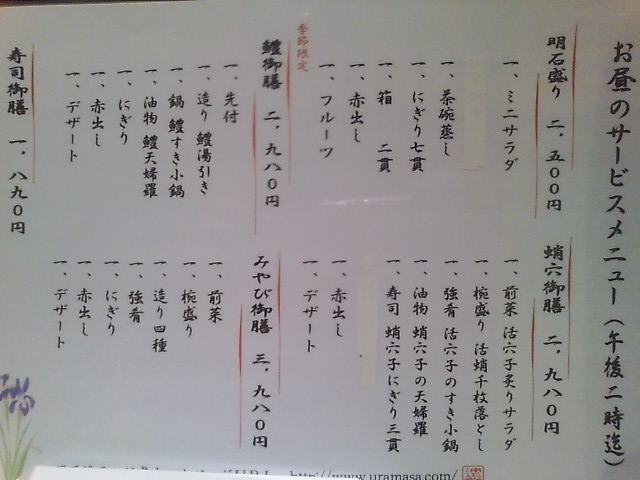 お昼のサービスメニュー(午後二時迄)
明石盛り 二、五〇〇円
一、ミニサラダ
一、茶碗蒸し
一、にぎり七貫
一、箱 二貫
一、赤出し
一、フルーツ
季節限定
鱧御膳 二、九八〇円
一、先付
一、造り 鱧湯引き
一、鍋 鱧すき小鍋
一、油物 鱧天婦羅
一、にぎり
一、赤出し
一、デザート
寿司御膳 一、八九〇円
蛸穴御膳 二、九八〇円
一、前菜 活穴子炙りサラダ
一、椀盛り 活蛸千枚落とし
一、強肴 活穴子のすき小鍋
一、油物 蛸穴子の天婦羅
一、寿司 蛸穴子にぎり三貫
一、赤出し
一、デザート
みやび御膳 三、九八〇円
一、前菜
一、椀盛り
一、造り四種
一、強肴
一、にぎり
一、赤出し
一、デザート
http://www.uramasa.com/